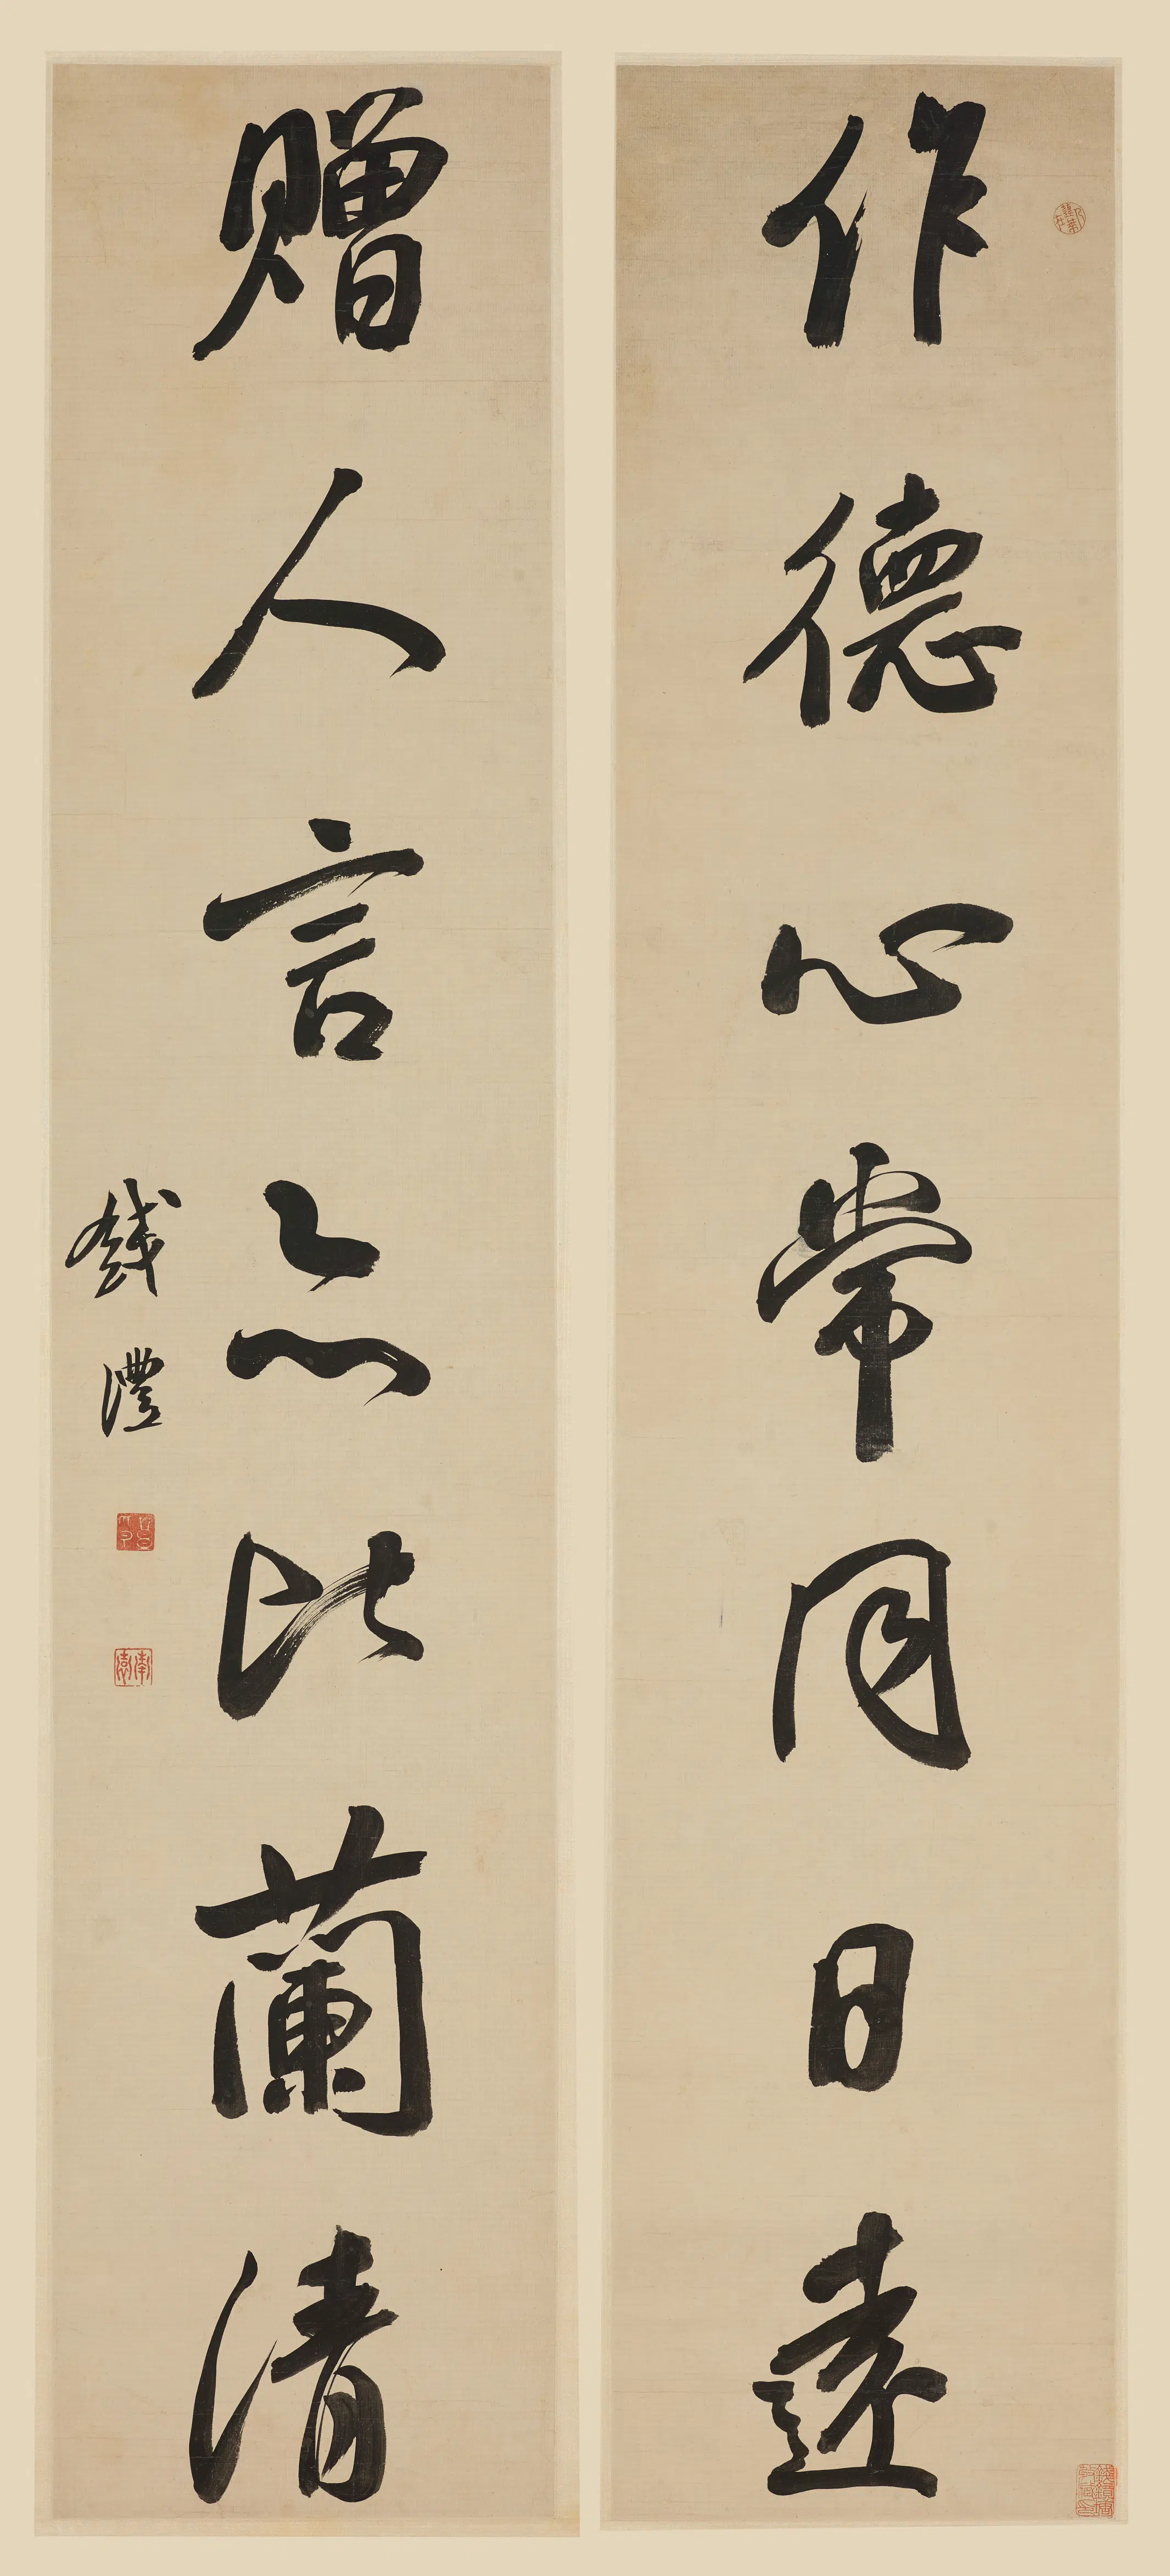 作德心常同日遠
贈人言亦比蘭清
錢灃
南園